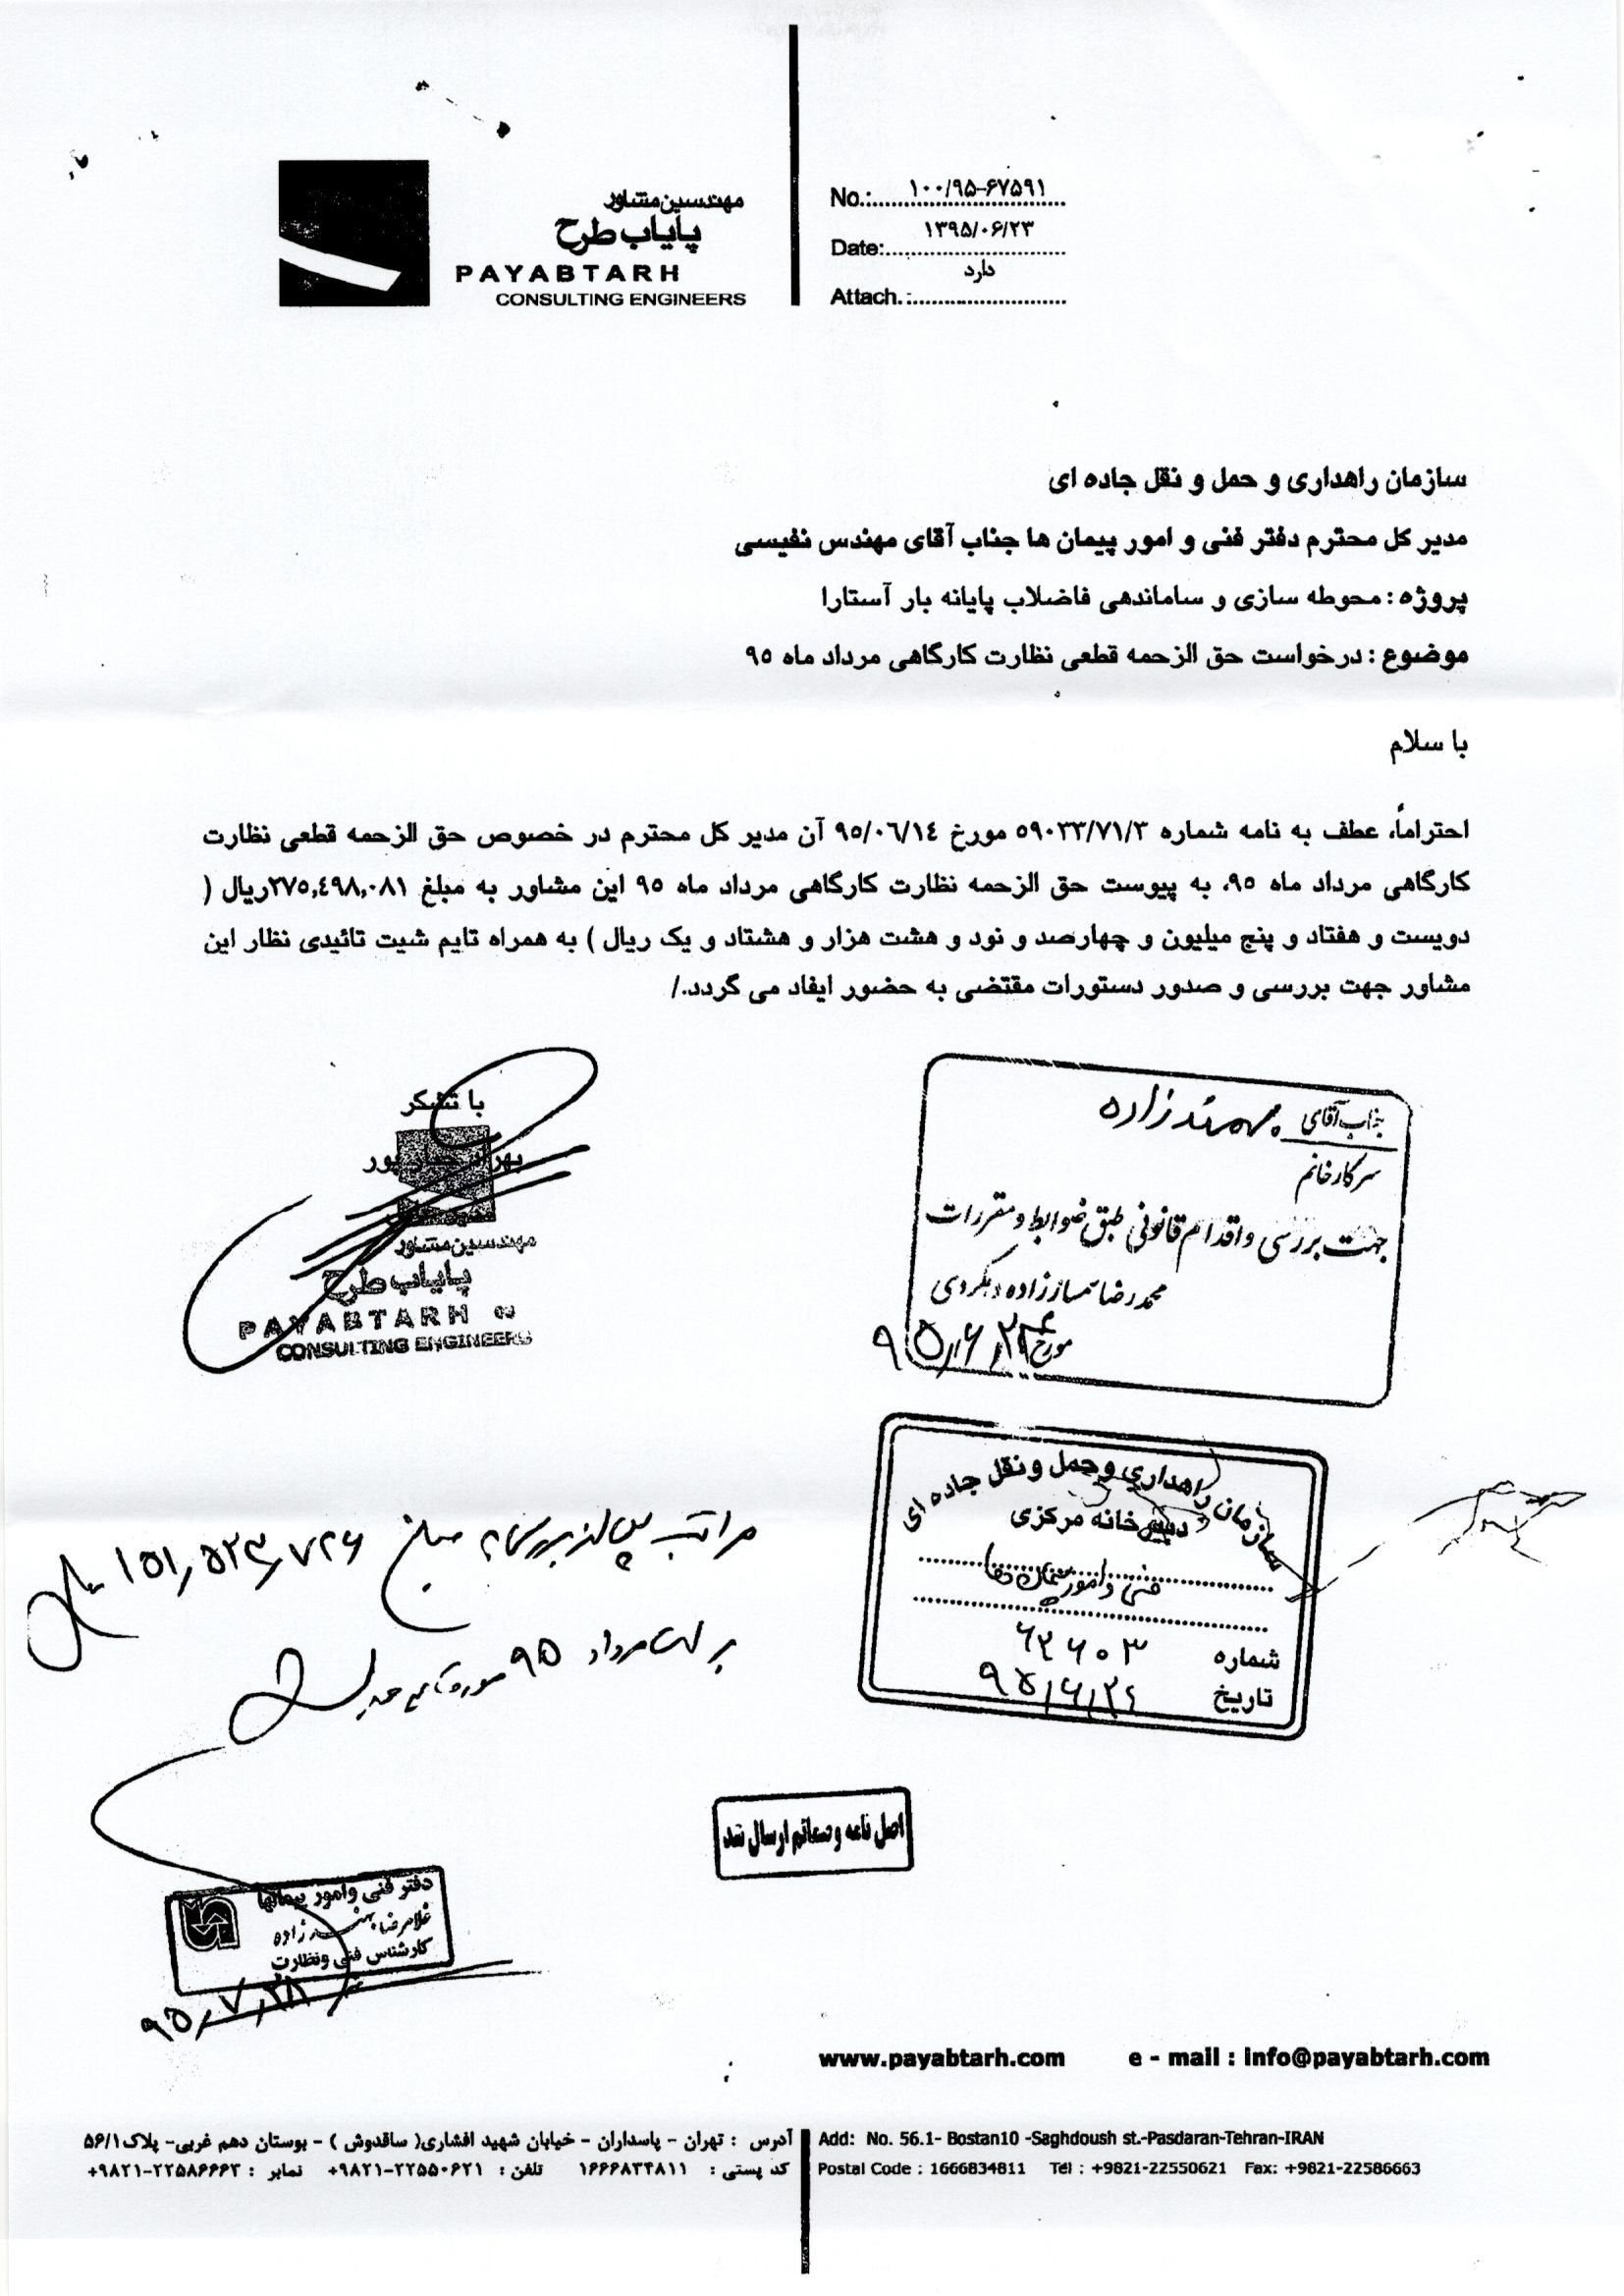 مهندسین مشاور
پایاب طرح
PAYABTARH
CONSULTING ENGINEERS
No.: ۱۰۰/۹۵-۶۷۵۹۱
Date: ۱۳۹۵/۰۶/۲۳
Attach.: دارد
سازمان راهداری و حمل و نقل جاده ای
مدیر کل محترم دفتر فنی و امور پیمان ها جناب آقای مهندس نفیسی
پروژه : محوطه سازی و ساماندهی فاضلاب پایانه بار آستارا
موضوع : درخواست حق الزحمه قطعی نظارت کارگاهی مرداد ماه ۹۵
با سلام
احتراماً، عطف به نامه شماره ۵۹۰۳۳/۷۱/۳ مورخ ۹۵/۰۶/۱۴ آن مدیر کل محترم در خصوص حق الزحمه قطعی نظارت
کارگاهی مرداد ماه ۹۵، به پیوست حق الزحمه نظارت کارگاهی مرداد ماه ۹۵ این مشاور به مبلغ ۲۷۵,٤۹۸,۰۸۱ریال (
دویست و هفتاد و پنج میلیون و چهارصد و نود و هشت هزار و هشتاد و یک ریال ) به همراه تایم شیت تائیدی نظار این
مشاور جهت بررسی و صدور دستورات مقتضی به حضور ایفاد می گردد./
با تشکر
مهندسین مشاور
پایاب طرح
PAYABTARH
CONSULTING ENGINEERS
جناب آقای بهمندزاده
سرکار خانم
جهت بررسی و اقدام قانونی طبق ضوابط و مقررات
محمدرضا
مورخ
سازمان راهداری و حمل و نقل جاده ای
دبیرخانه مرکزی
فنی و امور پیمان ها
شماره ۶۲۶۰۳
تاریخ ۹۵/۶/۲۴
مراتب پس از بررسی مبلغ ۱۵۱,۵۲۳,۷۲۶ ریال
مرداد ۹۵ مورد
اصل نامه و ضمائم ارسال شد
دفتر فنی و امور پیمانها
غلامرضا
کارشناس فنی و نظارت
۹۵/۷/۲۸
www.payabtarh.com e - mail : info@payabtarh.com
آدرس : تهران - پاسداران - خیابان شهید افشاری( ساقدوش ) - بوستان دهم غربی- پلاک۵۶/۱
کد پستی : ۱۶۶۶۸۳۴۸۱۱ تلفن : ۲۲۵۵۰۶۲۱-۹۸۲۱+ نمابر : ۲۲۵۸۶۶۶۳-۹۸۲۱+
Add: No. 56.1- Bostan10 -Saghdoush st.-Pasdaran-Tehran-IRAN
Postal Code : 1666834811 Tel : +9821-22550621 Fax: +9821-22586663